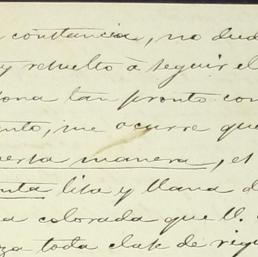 constancia, no dud
y resuelto à seguir el
tan pronto con
me ocurre que
manera, el
lisa y llana d
a colorada que U.
toda clase de